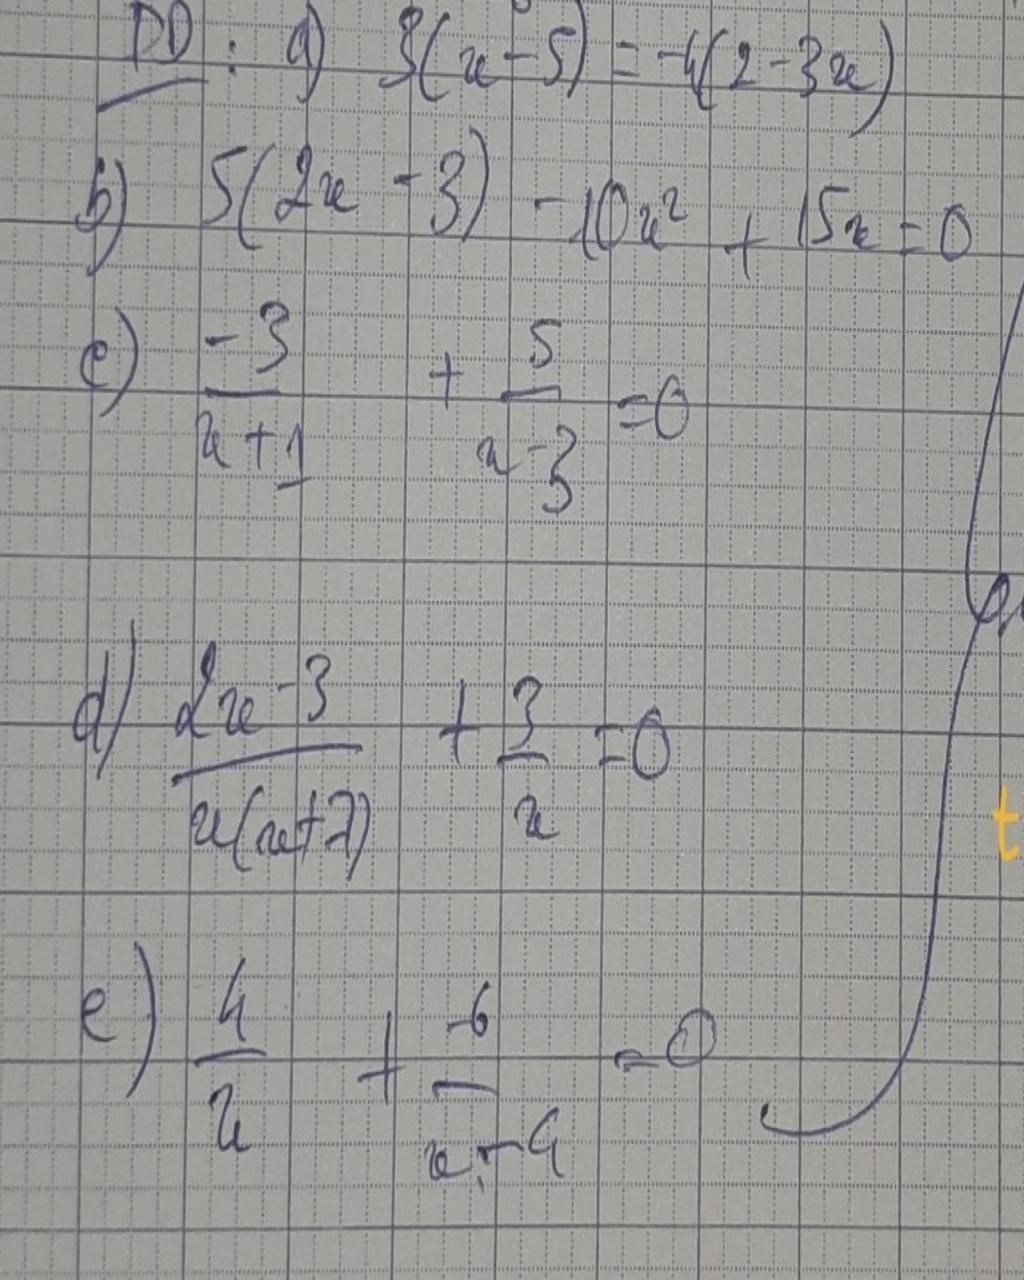 DD : a) 3(x-5) = -4(2-3x)
b) 5(2x-3) -10x² + 15x = 0
c) -3/(x+1) + 5/(x-3) = 0
d) (2x-3)/(x(x+7)) + 3/x = 0
e) 4/x + -6/(x-4) = 0
t